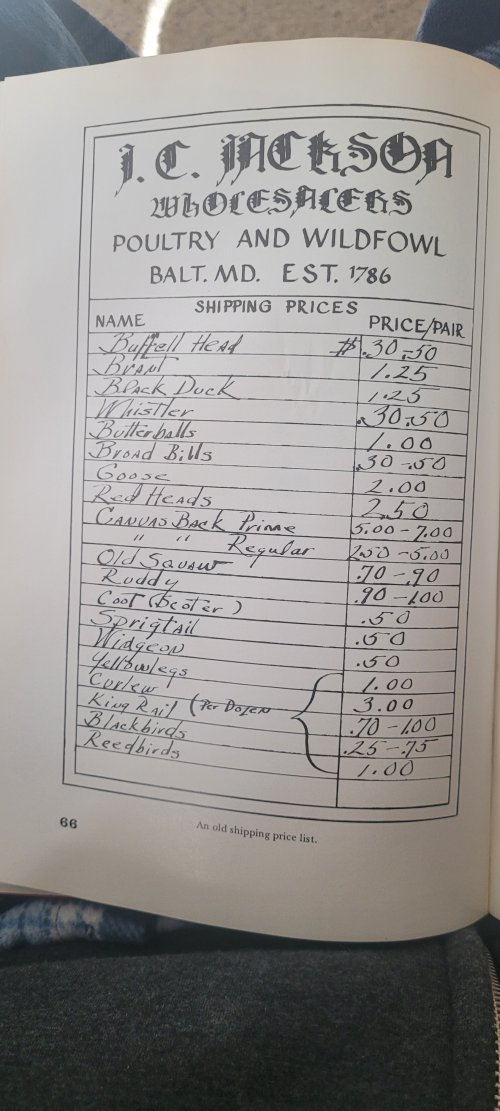 J. C. JACKSON
WHOLESALERS
POULTRY AND WILDFOWL
BALT. MD. EST. 1786
SHIPPING PRICES
NAME PRICE/PAIR
Buffell Head $ .30-.50
Brant 1.25
Black Duck 1.25
Whistler .30-.50
Butterballs 1.00
Broad Bills .30-.50
Goose 2.00
Red Heads 2.50
Canvas Back Prime 5.00-7.00
" " Regular 2.50-5.00
Old Squaw .70-.90
Ruddy .90-1.00
Coot (Scoter) .50
Sprigtail .50
Widgeon .50
Yellowlegs 1.00
Curlew 3.00
King Rail (Per Dozen .70-1.00
Blackbirds .25-.75
Reedbirds 1.00
66 An old shipping price list.